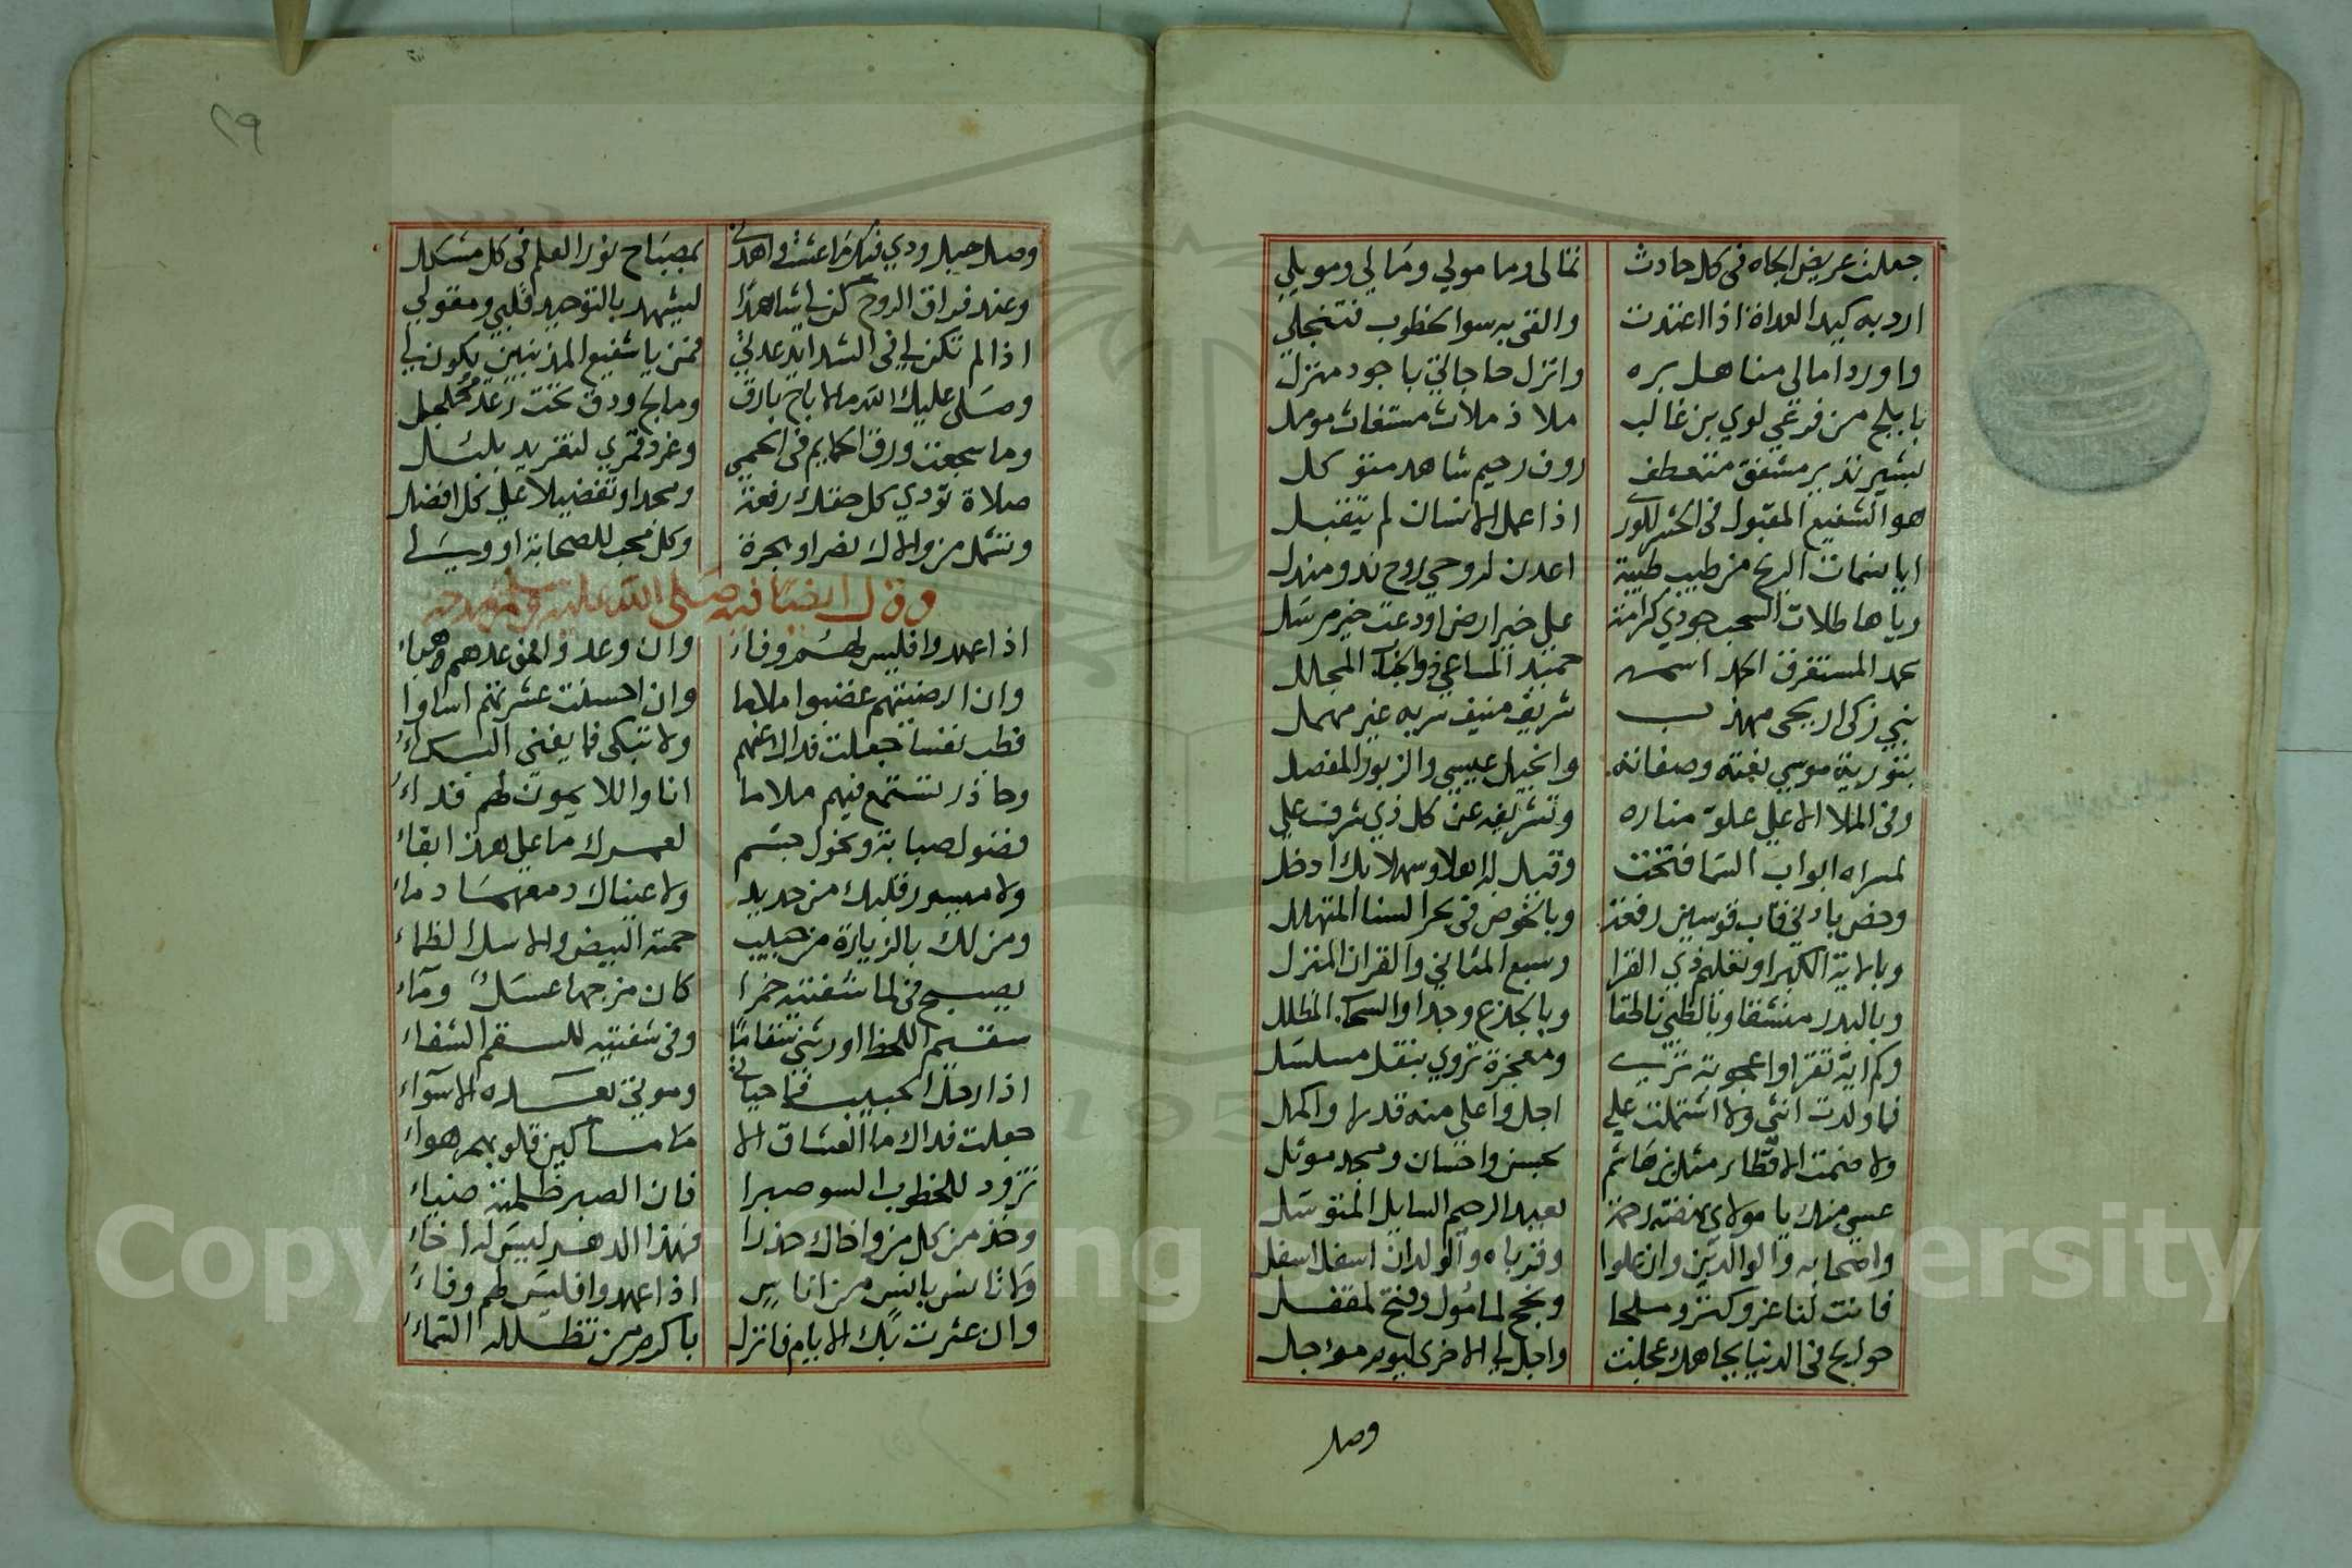 جعلت عريض الجاه في كل حادث ثمالي ومامولي ومالي ومويلي
ارد به كيد العداة اذا اعتدت والقى به سوا لخطوب فتنجلي
واورد امالي مناهل بره وانزل حاجاتي باجود منزل
بابلج من فرعي لوي بن غالب ملاذ ملاث مستغاث مومل
بشير نذير مشفق متعطف روف رحيم شاهد متوكل
هو الشفيع المقبول في الحشر للورى اذا عمل الانسان لم يتقبل
ايا نسمات الريح من طيب طيبة اعدن لروحي روح ند ومندل
وياهاطلات السحب جودي كرامة على خير ارض اودعت خير مرسل
محمد المستغرق الحمد اسمه حميد المساعي
نبي زكي اريحي مهذب شريف منيف سربه غير مهمل
بتورية موسى نعته وصفاته وانجيل عيسى والزبور المفصل
وفي الملا الاعلى علو مناره وتشريفه عن كل ذي شرف علي
لمسراه ابواب السما فتحت وقيل له اهلا وسهلا بك ادخل
وخص بادني قاب قوسين رفعة وبالخوض في بحر السنا المتهلل
وبالاية الكبرا وتعليم ذي القرا وسبع المثاني والقران المنزل
وبالبدر منشقا وبالظبي ناطقا وبالجذع وجدا والسحاب المظلل
وكم اية تقرا واعجوبة ترى ومعجزة تروي بنقل مسلسل
فما ولدت انثى ولا اشتملت على اجل واعلى منه قدرا واكمل
ولا ضمت الاقطار مثل بن هاشم بحسن واحسان ومجد موثل
عسى منك يا مولاي نفضه رحمة لعبد الرحيم السايل المتوسل
واصحابه والوالدين وان علوا وقرباه والولدان اسفل اسفل
فانت لنا عز وكنز وملجا ونجح لمامول وفتح لمقفل
حوايج في الدنيا بجاهك عجلت واجل لي الاخرى ليوم مؤجل
وصل
٢٩
وصل حبل ودي فيك ما عشت واهدني بمصباح نور العلم في كل مشكل
وعند فراق الروح كن لي شاهدا ليشهد بالتوحيد قلبي ومقولي
اذا لم تكن لي في الشدايد عدتي فمن يا شفيع المذنبين يكون لي
وصلى عليك الله ما لاح بارق وما ثج ودق تحت رعد مجلجل
وما سجعت ورق الحمايم في الحمى وغرد قمري لتغريد بلبل
صلاة تودي كل حقك رفعة ومجدا وتفضيلا على كل افضل
وتشمل من والاك نصرا وهجرة وكل محب للصحابة او ولي
وقال ايضا فيه صلى الله عليه وسلم
اذا عهدوا فليس لهم وفاء وان وعدوا فموعدهم هباء
وان ارضيتهم غضبوا ملاما وان احسنت عشرتهم اساوا
فطب نفسا جعلت فداك عنهم ولا تبكي فما يغني البكاء
وحاذر تستمع فيهم ملاما انا واللا يمون لهم فداء
فضول صبابة ونحول جسم لعمرك ما على هذا بقاء
ولا مبسور قلبك من حديد ولا عيناك دمعهما دماء
ومن لك بالزيارة من حبيب حمته البيض والاسل الظماء
يصبح في لما شفتيه خمرا كان مزجها عسل وماء
سقيم اللحظ اورثني سقاما وفي شفتيه للسقم الشفاء
اذا رحل الحبيب فما حياتي وموتي بعده الا سواء
جعلت فداك ما العشاق الا مساكين قلوبهم هواء
تزود للخطوب السو صبرا فان الصبر ظلمته ضياء
وخذ من كل من واخاك حذرا فهذا الدهر ليس له اخاء
ولا تانس بانس من اناس اذا عهدوا فليس لهم وفاء
وان عثرت بك الايام فانزل باكرم من تظلله السماء